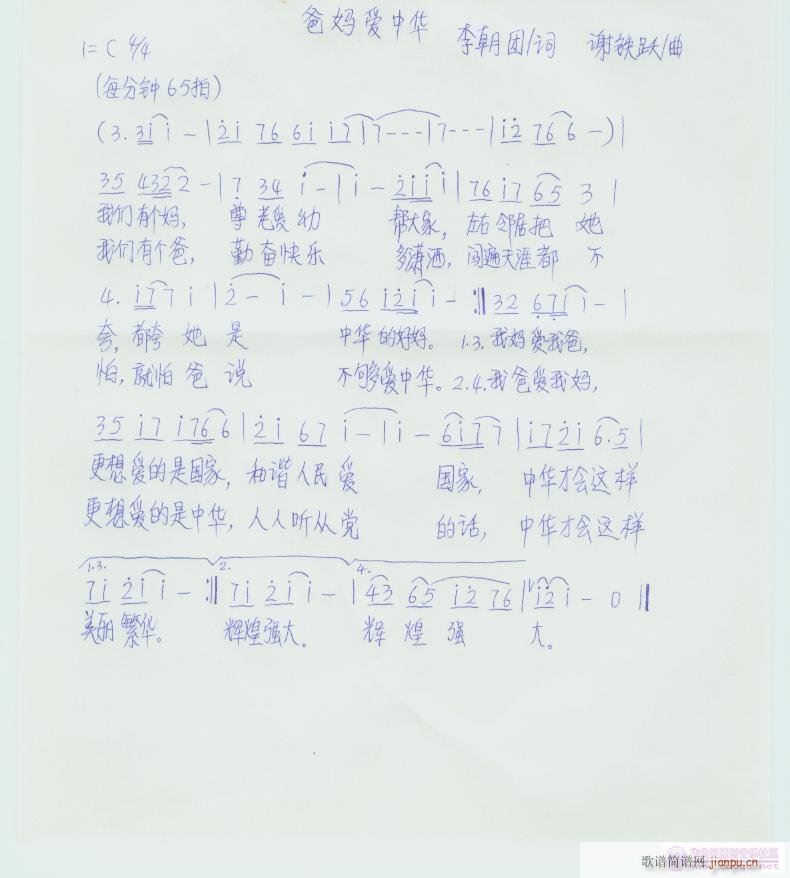 爸妈爱中华
1=C 4/4 李朝团/词 谢铁跃/曲
(每分钟65拍)
(3. 3i i - | 2i 76 6i i7 | 7--- | 7--- | i2 76 6 -) |
35 4322 - | 7 34 i - | i - 2iii | 76 i7 65 3 |
我们有个妈, 尊老爱幼 帮大家, 左右邻居把她
我们有个爸, 勤奋快乐 多潇洒, 闯遍天涯都不
4. i77 i | 2 - i - | 56 i2ii - :|| 32 67ii - |
夸, 都夸她是 中华的好妈。 1.3.我妈爱我爸,
怕, 就怕爸说 不够爱中华。 2.4.我爸爱我妈,
35 i7 i766 | 2i 67 i - | i - 6i77 | i7 2i 6.5 |
更想爱的是国家, 和谐人民爱 国家, 中华才会这样
更想爱的是中华, 人人听从党 的话, 中华才会这样
1.3. 2. 4.
7i 2i i - :|| 7i 2i i - | 43 65 i2 76 | i2 i - 0 ||
美丽繁华。 辉煌强大。 辉煌强 大。
歌谱简谱网
jianpu.cn